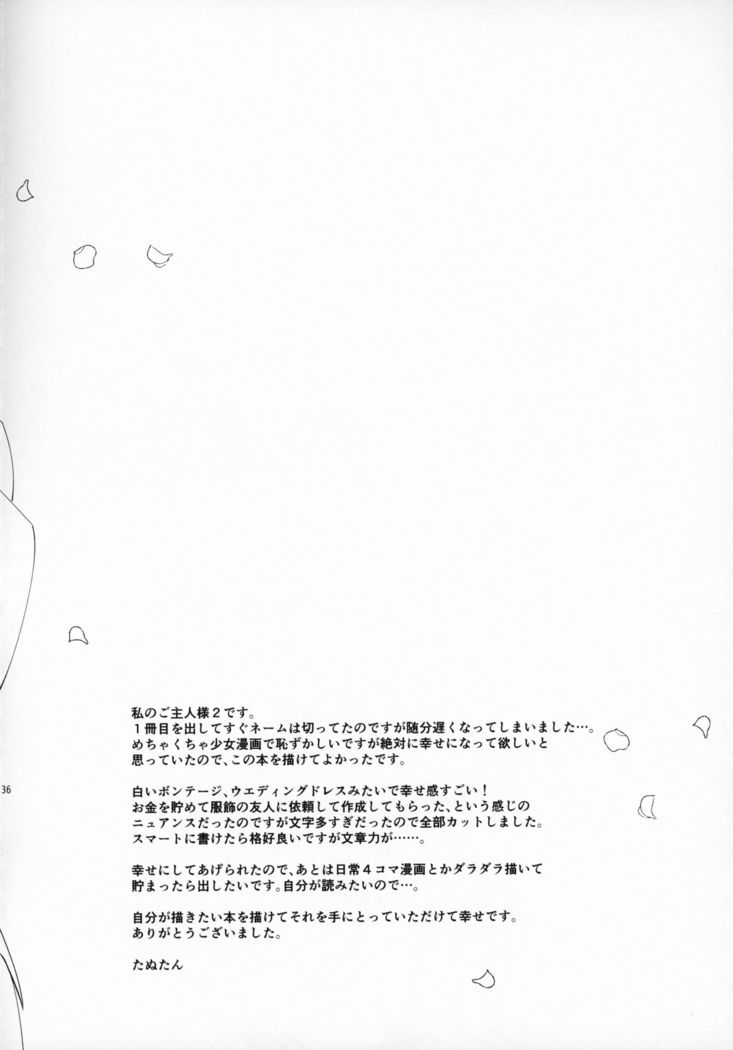 私のご主人様２です。
１冊目を出してすぐネームは切ってたのですが随分遅くなってしまいました…。
めちゃくちゃ少女漫画で恥ずかしいですが絶対に幸せになって欲しいと
思っていたので、この本を描けてよかったです。
白いボンテージ、ウエディングドレスみたいで幸せ感すごい！
お金を貯めて服飾の友人に依頼して作成してもらった、という感じの
ニュアンスだったのですが文字多すぎだったので全部カットしました。
スマートに書けたら格好良いですが文章力が……。
幸せにしてあげられたので、あとは日常４コマ漫画とかダラダラ描いて
貯まったら出したいです。自分が読みたいので…。
自分が描きたい本を描けてそれを手にとっていただけて幸せです。
ありがとうございました。
たぬたん
36